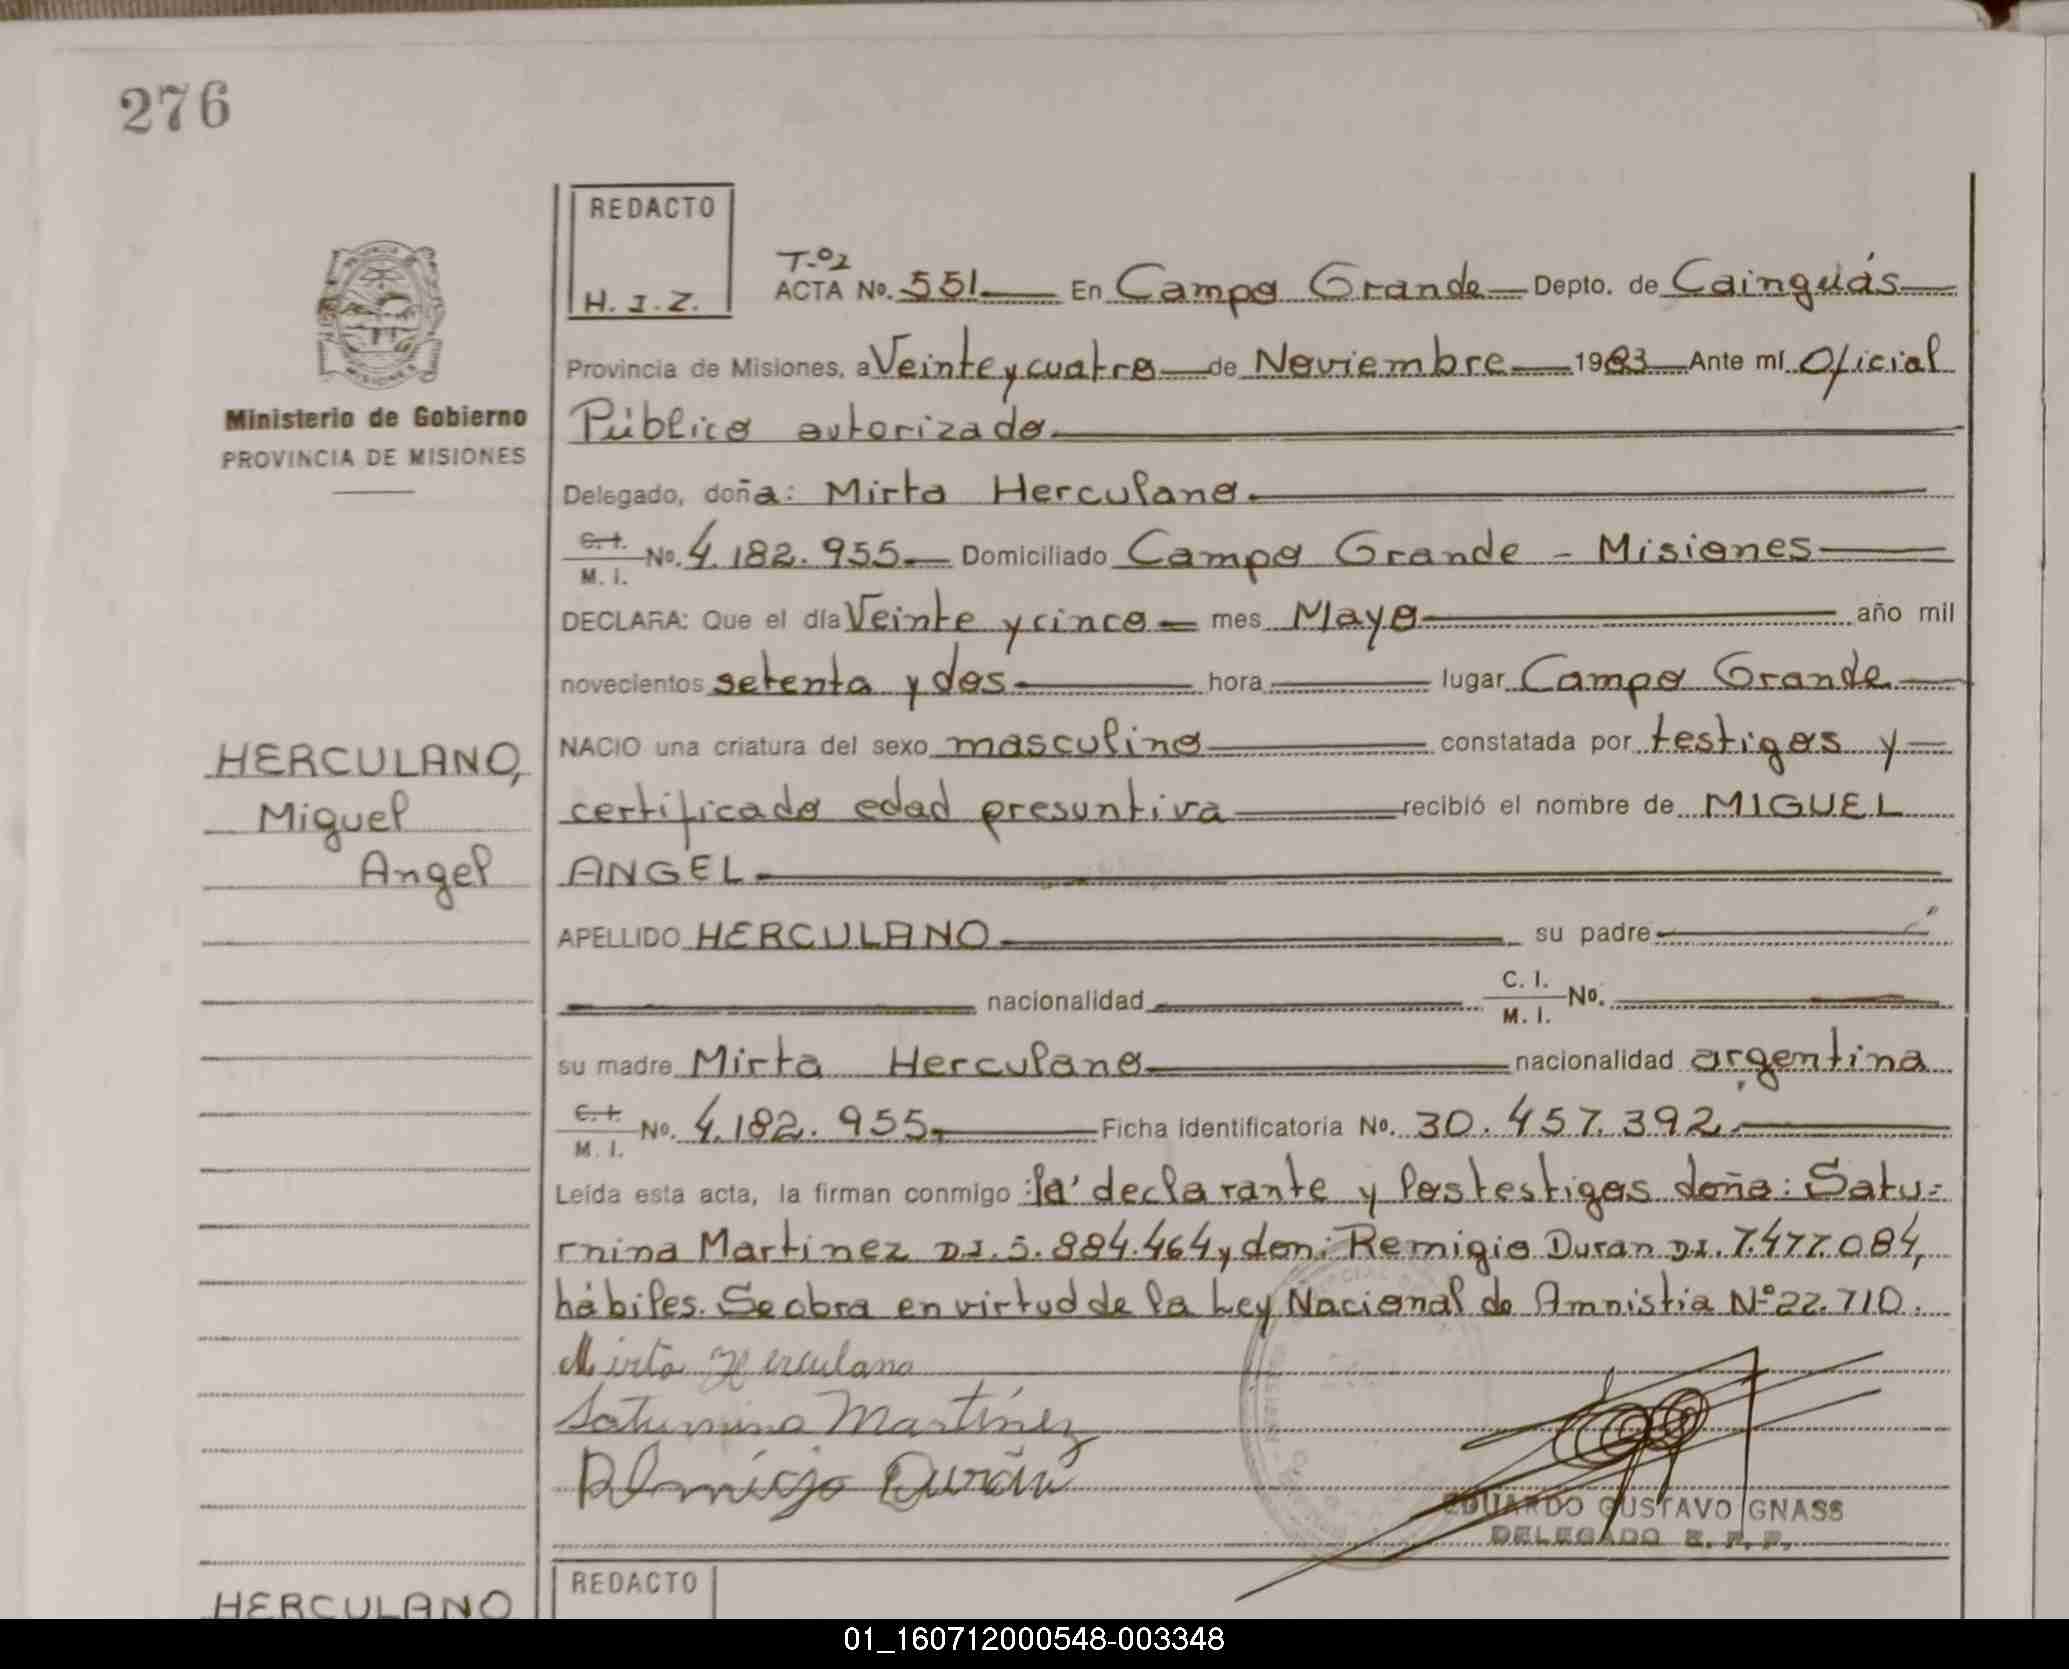 276
REDACTO
H. I. Z.
T.º2
ACTA No. 551 En Campo Grande Depto. de Cainguás
Provincia de Misiones, a Veinte y cuatro de Noviembre 1983 Ante mí Oficial
Público autorizado
Delegado, doña: Mirta Herculano.
C. I.
M. I. No. 4.182.955 Domiciliado Campo Grande - Misiones
DECLARA: Que el día Veinte y cinco mes Mayo año mil
novecientos setenta y dos hora lugar Campo Grande
NACIO una criatura del sexo masculino constatada por testigos y
certificado edad presuntiva recibió el nombre de MIGUEL
ANGEL
APELLIDO HERCULANO su padre
nacionalidad C. I.
M. I. No.
su madre Mirta Herculano nacionalidad argentina
C. I.
M. I. No. 4.182.955 Ficha identificatoria No. 30.457.392
Leída esta acta, la firman conmigo :la declarante y los testigos doña: Satu-
rnina Martinez DI. 5.884.464 y don: Remigio Duran DI. 7.477.084,
hábiles. Se obra en virtud de la Ley Nacional de Amnistia Nº 22.710.
Mirta Herculano
Saturnina Martínez
Remigio Durán
EDUARDO GUSTAVO GNASS
DELEGADO R. P. P.
Ministerio de Gobierno
PROVINCIA DE MISIONES
HERCULANO,
Miguel
Angel
HERCULANO
REDACTO
01_160712000548-003348